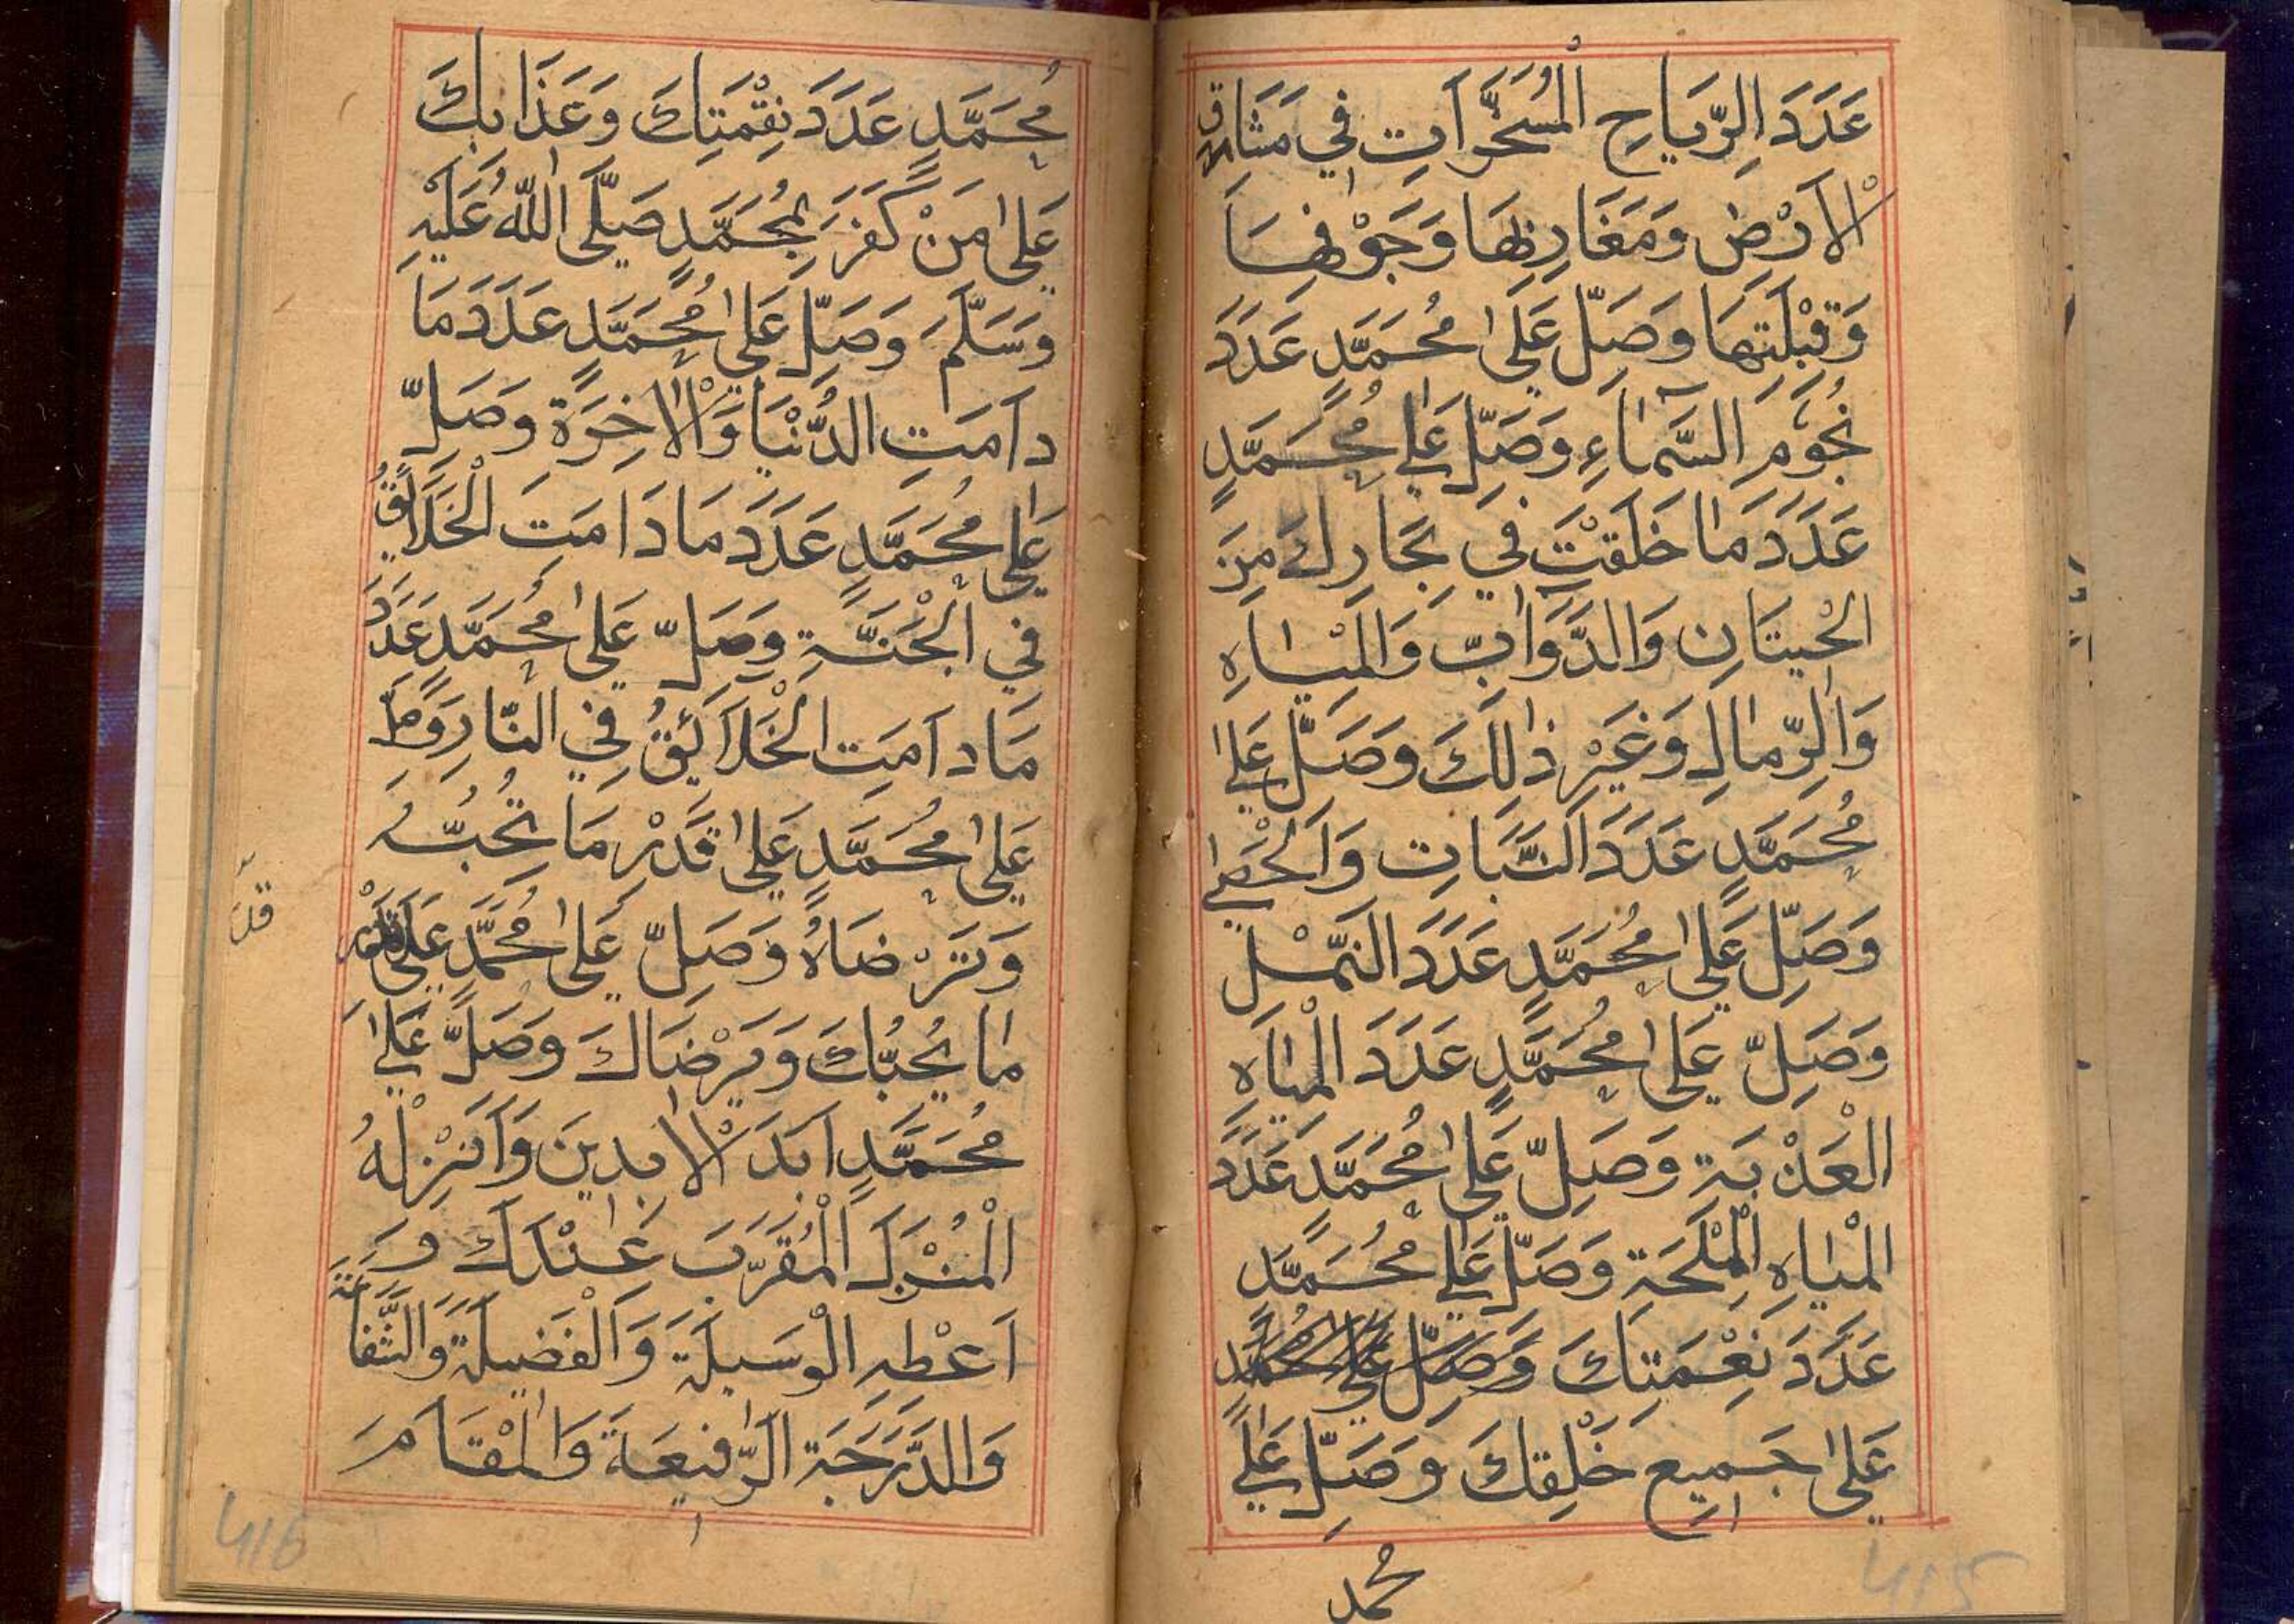 عَدَدَ الرِّيَاحِ الْمُسَخَّرَاتِ فِي مَشَارِقِ
الْاَرْضِ وَمَغَارِبِهَا وَجَوْفِهَا
وَقِبْلَتِهَا وَصَلِّ عَلٰى مُحَمَّدٍ عَدَدَ
نُجُومِ السَّمَاءِ وَصَلِّ عَلٰى مُحَمَّدٍ
عَدَدَ مَا خَلَقْتَ فِي بِحَارِكَ مِنَ
الْحِيتَانِ وَالدَّوَابِّ وَالْمِيَاهِ
وَالرِّمَالِ وَغَيْرِ ذٰلِكَ وَصَلِّ عَلٰى
مُحَمَّدٍ عَدَدَ النَّبَاتِ وَالْحَصٰى
وَصَلِّ عَلٰى مُحَمَّدٍ عَدَدَ النَّمْلِ
وَصَلِّ عَلٰى مُحَمَّدٍ عَدَدَ الْمِيَاهِ
الْعَذْبَةِ وَصَلِّ عَلٰى مُحَمَّدٍ عَدَدَ
الْمِيَاهِ الْمِلْحَةِ وَصَلِّ عَلٰى مُحَمَّدٍ
عَدَدَ نِعْمَتِكَ وَصَلِّ عَلٰى مُحَمَّدٍ
عَلٰى جَمِيعِ خَلْقِكَ وَصَلِّ عَلٰى
محمد
415
مُحَمَّدٍ عَدَدَ نِقْمَتِكَ وَعَذَابِكَ
عَلٰى مَنْ كَفَرَ بِمُحَمَّدٍ صَلَّى اللّٰهُ عَلَيْهِ
وَسَلَّمَ وَصَلِّ عَلٰى مُحَمَّدٍ عَدَدَ مَا
دَامَتِ الدُّنْيَا وَالْاٰخِرَةِ وَصَلِّ
عَلٰى مُحَمَّدٍ عَدَدَ مَا دَامَتِ الْخَلَائِقُ
فِي الْجَنَّةِ وَصَلِّ عَلٰى مُحَمَّدٍ عَدَدَ
مَا دَامَتِ الْخَلَائِقُ فِي النَّارِ وَصَلِّ
عَلٰى مُحَمَّدٍ عَلٰى قَدْرِ مَا تُحِبُّهُ
وَتَرْضَاهُ وَصَلِّ عَلٰى مُحَمَّدٍ عَلٰى قَدْرِ
مَا يُحِبُّكَ وَيَرْضَاكَ وَصَلِّ عَلٰى
مُحَمَّدٍ اَبَدَ الْاٰبِدِينَ وَاَنْزِلْهُ
الْمُنْزَلَ الْمُقَرَّبَ عِنْدَكَ وَ
اَعْطِهِ الْوَسِيلَةَ وَالْفَضِيلَةَ وَالشَّفَاعَةَ
وَالدَّرَجَةَ الرَّفِيعَةَ وَالْمَقَامَ
416